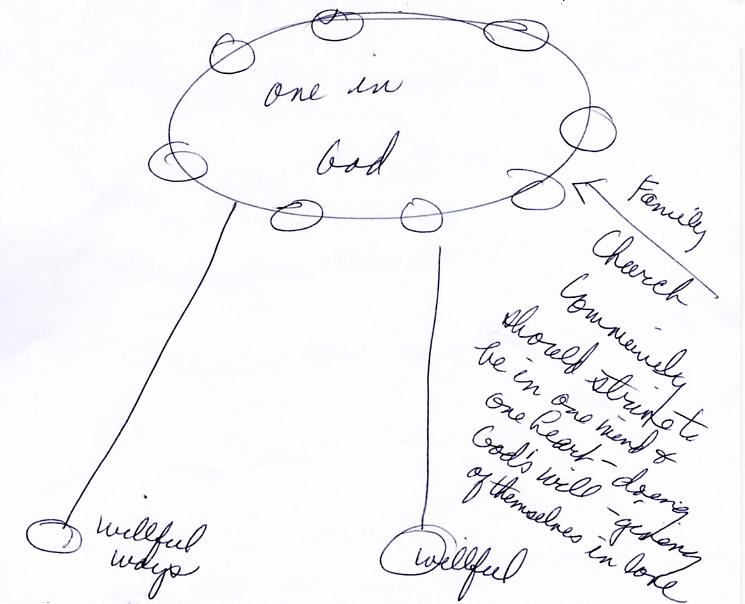 one in
God
Family
Church
Community
should strive to
be in one mind &
one heart - doing
God's will - giving
of themselves in love
willful
ways
willful